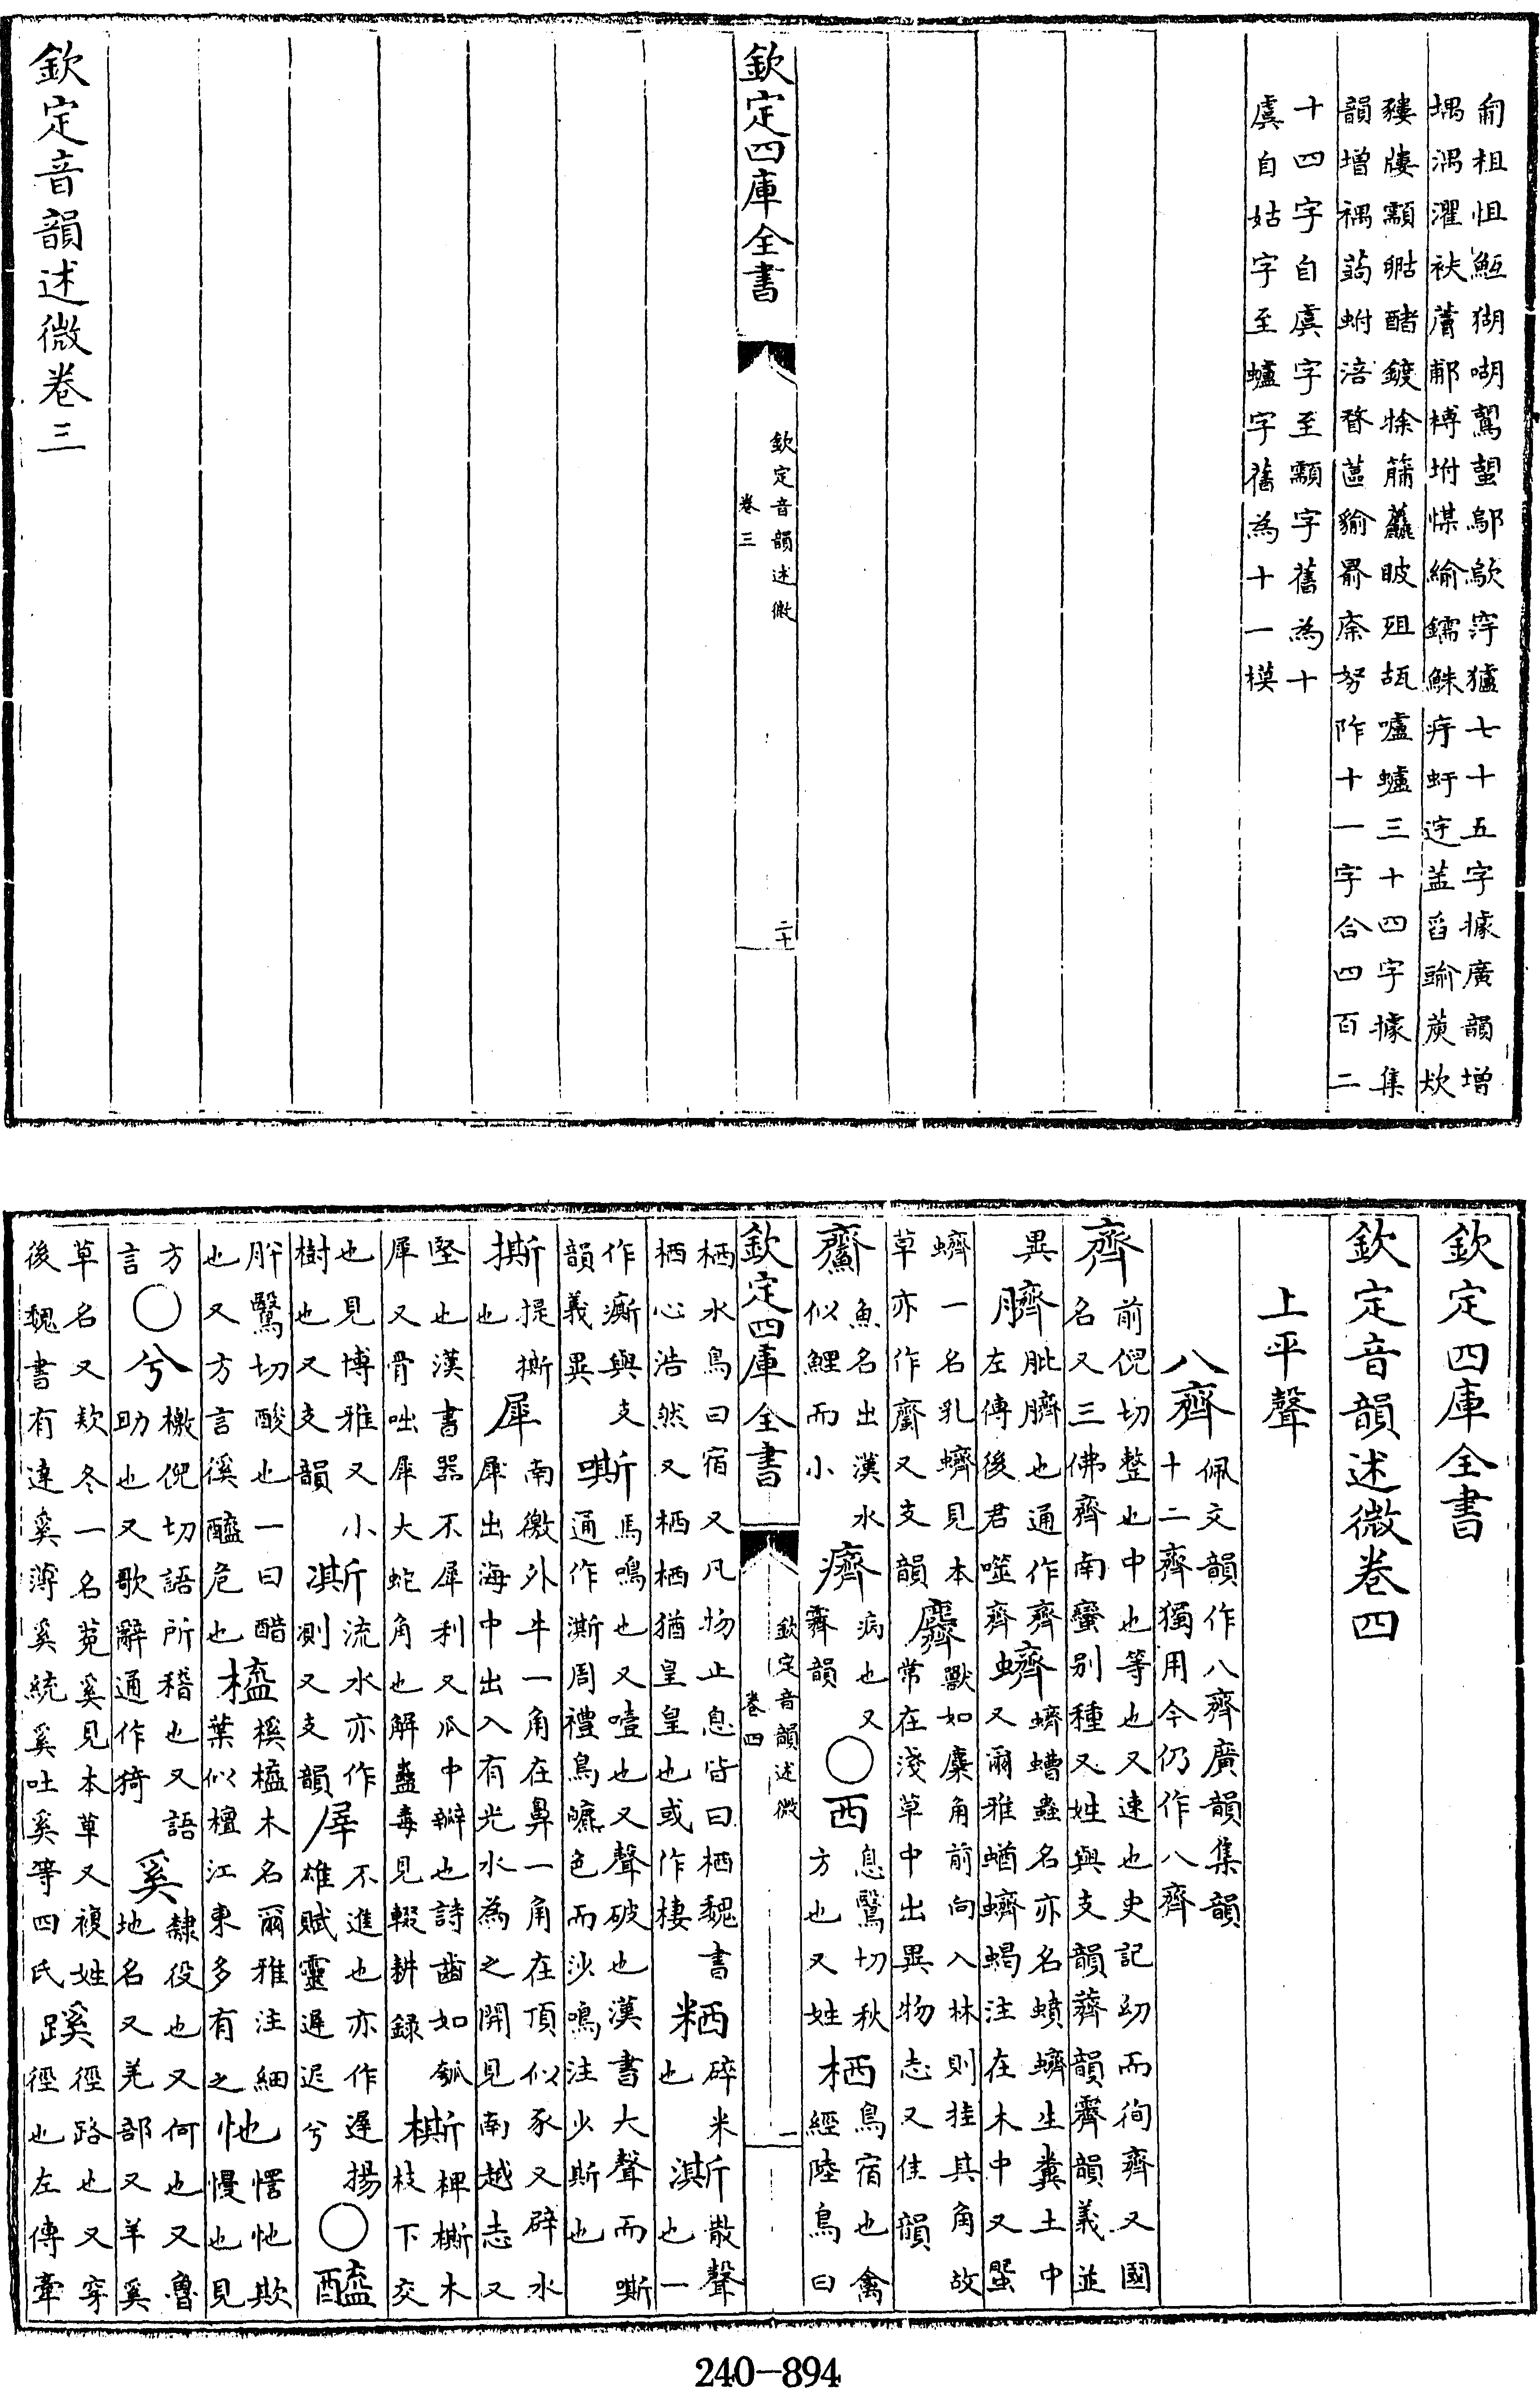 匍柤怚䱟猢𠴱鴽蝁鄔歍䆛獹七十五字據廣韻增
堣湡濯衭蒲鄜榑坿惵緰鑐鮢疛虶迂盖䍃踰萸炊
貗㡞顬𦚢醏鍍悇蒲麤䀯殂瓳嚧蠦三十四字據集
韻增禑蒟蚹涪瞀蓲貐㔱㾈努阼十一字合四百二
十四字自虞字至顬字舊為十
虞自姑字至蠦字舊為十一模
欽定四庫全書
欽定音韻述微
卷三
二十
欽定音韻述微卷三
欽定四庫全書
欽定音韻述微卷四
上平聲
八齊佩文韻作八齊廣韻集韻
十二齊獨用今仍作八齊
齊前倪切整也中也等也又速也史記幼而徇齊又國
名又三佛齊南蠻別種又姓與支韻薺韻霽韻義並
異臍肶臍也通作齊蠐蠐螬蟲名亦名蟦蠐生糞土中
左傳後君噬齊又爾雅蝤蠐蝎注在木中又䘌
蠐一名乳蠐見本
草亦作齏又支韻麡獸如麋角前向入林則挂其角故
常在淺草中出異物志又佳韻
齌魚名出漢水
似鯉而小癠病也又
霽韻○西息鷖切秋
方也又姓栖鳥宿也禽
經陸鳥曰
欽定四庫全書
欽定音韻述微
卷四
一
栖水鳥曰宿又凡物止息皆曰栖魏書
栖心浩然又栖栖猶皇皇也或作棲粞碎米
也澌散聲
也一
作凘與支
韻義異嘶馬鳴也又噎也又聲破也漢書大聲而嘶
通作澌周禮鳥皫色而沙鳴注沙嘶也
撕提撕
也犀南徼外牛一角在鼻一角在頂似豕又辟水
犀出海中出入有光水為之開見南越志又
堅也漢書器不犀利又瓜中瓣也詩齒如瓠
犀又骨咄犀大蛇角也解蠱毒見輟耕錄㯕椑㯕木
枝下交
也見博雅又小
樹也又支韻凘流水亦作
凘則又支韻屖不進也亦作遲揚
雄賦靈遲迟兮○醯
肸鷖切酸也一曰醋
也又方言傒醯危也橀榽橀木名爾雅注細
葉似檀江東多有之㐌㦬㐌欺
慢也見
方
言○兮檄倪切語所稽也又語
助也又歌辭通作猗奚隸役也又何也又魯
地名又羌部又羊奚
草名又欵冬一名菟奚見本草又複姓
後魏書有達奚薄奚統奚吐奚等四氏蹊徑路也又穿
徑也左傳牽
240-894